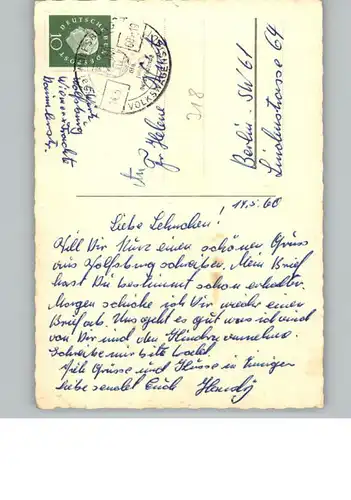 DEUTSCHE BUNDESPOST
10
VOLKSWAGENS
318
An
Fr Helene
Berlin - SW 61
Lindenstrasse 64
Wolfsburg
14.5.60
Liebe Lehnchen!
Will Dir kurz einen schönen Gruss
aus Wolfsburg schreiben. Mein Brief
hast Du bestimmt schon erhalten.
Morgen schicke ich Dir wieder einen
Brief ab. Uns geht es gut was ich auch
von Dir und den Kinder
Schreibe mir bitte bald
Viele Grüsse und Küsse in inniger
Liebe sendet Euch